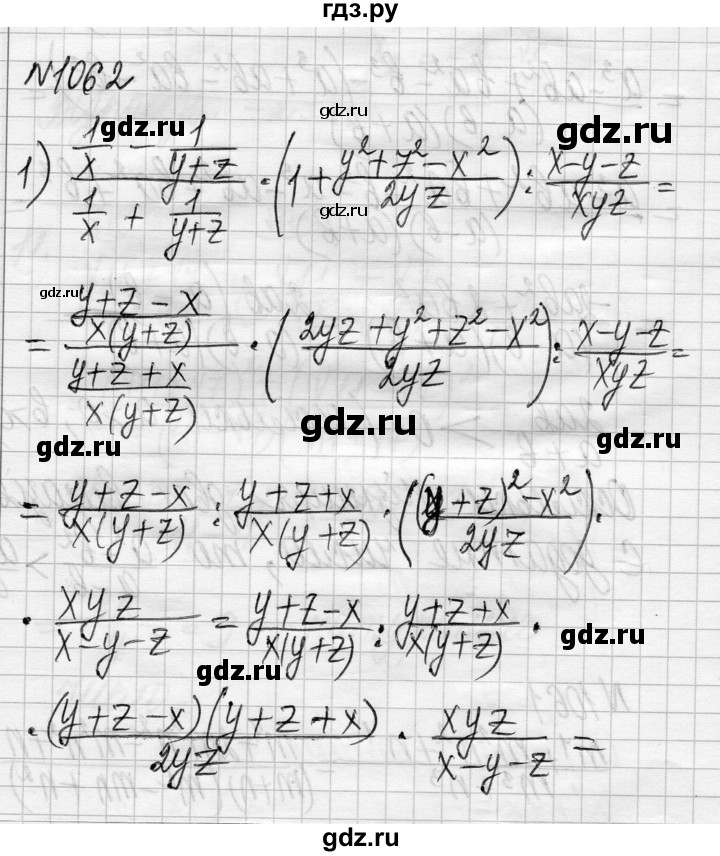 гдз.ру
№1062
1) (1/x - 1/(y+z))/(1/x + 1/(y+z)) · (1 + (y²+z²-x²)/(2yz)) : (x-y-z)/(xyz) =
= ((y+z-x)/(x(y+z)))/((y+z+x)/(x(y+z))) · ((2yz+y²+z²-x²)/(2yz)) : (x-y-z)/(xyz) =
= (y+z-x)/(x(y+z)) : (y+z+x)/(x(y+z)) · (((y+z)²-x²)/(2yz)) ·
· (xyz)/(x-y-z) = (y+z-x)/(x(y+z)) : (y+z+x)/(x(y+z)) ·
· ((y+z-x)(y+z+x))/(2yz) · (xyz)/(x-y-z) =
gdz.ru
gdz.ru
gdz.ru
gdz.ru
gdz.ru
gdz.ru
gdz.ru
gdz.ru
gdz.ru
gdz.ru
gdz.ru
gdz.ru
gdz.ru